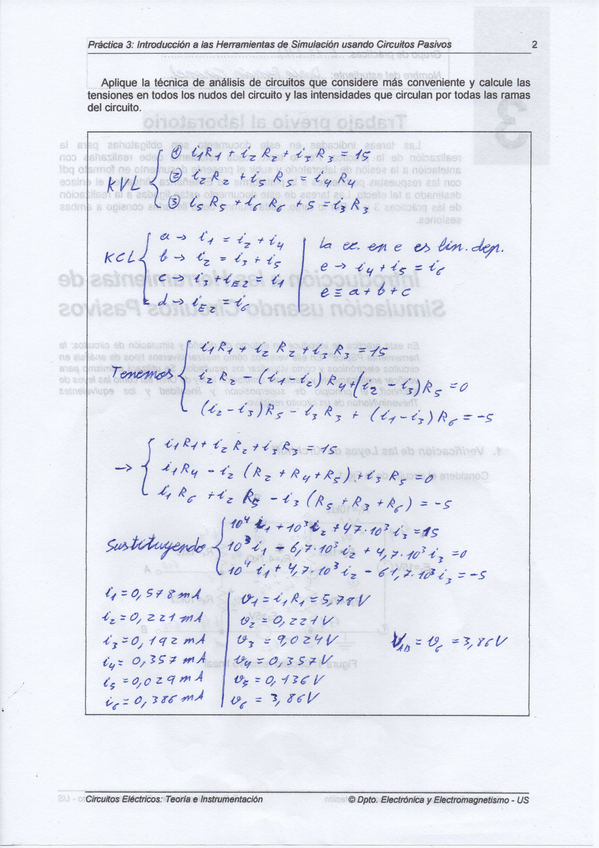 Práctica 3: Introducción a las Herramientas de Simulación usando Circuitos Pasivos 2
Aplique la técnica de análisis de circuitos que considere más conveniente y calcule las
tensiones en todos los nudos del circuito y las intensidades que circulan por todas las ramas
del circuito.
KVL
① i₁R₁ + i₂R₂ + i₃R₃ = 15
② i₂R₂ + i₅R₅ = i₄R₄
③ i₅R₅ + i₆R₆ + 5 = i₃R₃
KCL
a → i₁ = i₂ + i₄
b → i₂ = i₃ + i₅
c → i₃ + i_E2 = i₁
d → i_E2 = i₆
la ec. en e es lin. dep.
e → i₄ + i₅ = i₆
e ≡ a + b + c
Tenemos
i₁R₁ + i₂R₂ + i₃R₃ = 15
i₂R₂ - (i₁-i₂)R₄ + (i₂-i₃)R₅ = 0
(i₂-i₃)R₅ - i₃R₃ + (i₁-i₃)R₆ = -5
→
i₁R₁ + i₂R₂ + i₃R₃ = 15
i₁R₄ - i₂(R₂+R₄+R₅) + i₃R₅ = 0
i₁R₆ + i₂R₅ - i₃(R₅+R₃+R₆) = -5
Sustituyendo
10⁴i₁ + 10³i₂ + 47·10³i₃ = 15
10³i₁ - 6,7·10³i₂ + 4,7·10³i₃ = 0
10⁴i₁ + 4,7·10³i₂ - 61,7·10³i₃ = -5
i₁ = 0,578 mA
i₂ = 0,221 mA
i₃ = 0,192 mA
i₄ = 0,357 mA
i₅ = 0,029 mA
i₆ = 0,386 mA
v₁ = i₁R₁ = 5,78V
v₂ = 0,221V
v₃ = 9,024V
v₄ = 0,357V
v₅ = 0,136V
v₆ = 3,86V
V_AB = v₆ = 3,86V
Circuitos Eléctricos: Teoría e Instrumentación © Dpto. Electrónica y Electromagnetismo - US